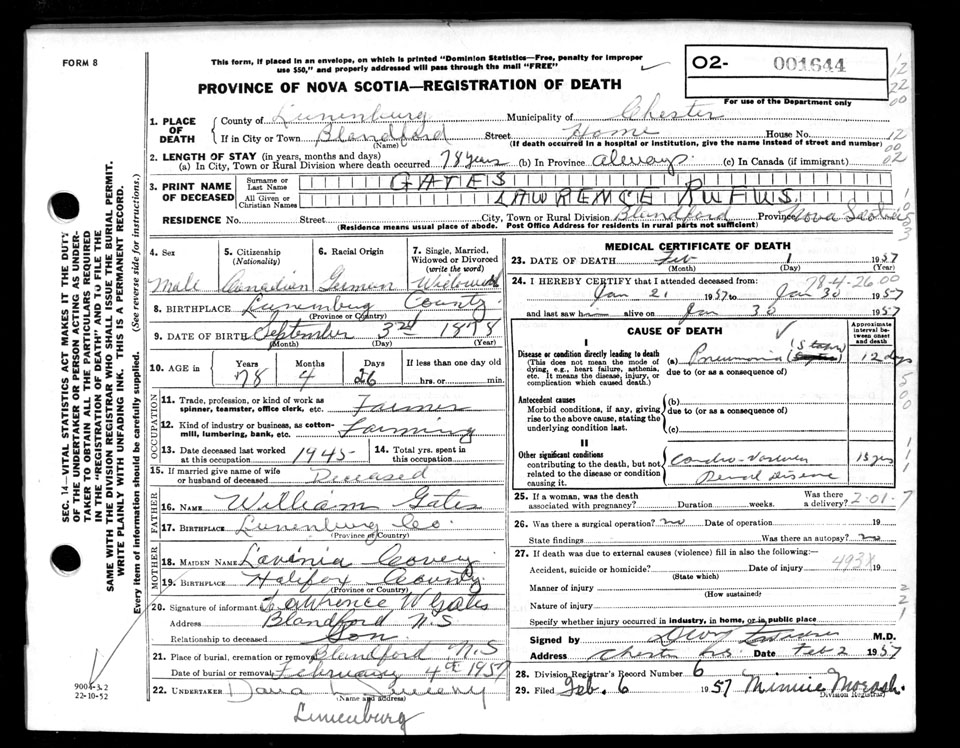 FORM 8
This form, if placed in an envelope, on which is printed "Dominion Statistics—Free, penalty for improper
use $50," and properly addressed will pass through the mail "FREE"
O2- 001644
For use of the Department only
PROVINCE OF NOVA SCOTIA—REGISTRATION OF DEATH
1. PLACE OF DEATH
County of Lunenburg Municipality of Chester
If in City or Town Blandford Street Home House No.
(Name) (If death occurred in a hospital or institution, give the name instead of street and number)
2. LENGTH OF STAY (in years, months and days)
(a) In City, Town or Rural Division where death occurred 78 years (b) In Province always. (c) In Canada (if immigrant)
3. PRINT NAME OF DECEASED
Surname or Last Name GATES
All Given or Christian Names LAWRENSE RUFUS
RESIDENCE No. Street City, Town or Rural Division Blandford Province Nova Scotia
(Residence means usual place of abode. Post Office Address for residents in rural parts not sufficient)
4. Sex Male
5. Citizenship (Nationality) Canadian
6. Racial Origin German
7. Single, Married, Widowed or Divorced (write the word) Widowed
8. BIRTHPLACE Lunenburg County
(Province or Country)
9. DATE OF BIRTH September 3rd 1878
(Month) (Day) (Year)
10. AGE in Years Months Days If less than one day old
78 4 26 hrs. or min.
OCCUPATION
11. Trade, profession, or kind of work as spinner, teamster, office clerk, etc. Farmer
12. Kind of industry or business, as cotton-mill, lumbering, bank, etc. Farming
13. Date deceased last worked at this occupation 1945
14. Total yrs. spent in this occupation
15. If married give name of wife or husband of deceased Deceased
FATHER
16. NAME William Gates
17. BIRTHPLACE Lunenburg Co.
(Province or Country)
MOTHER
18. MAIDEN NAME Lavinia Covey
19. BIRTHPLACE Halifax County
(Province or Country)
20. Signature of informant Lawrence W Gates
Address Blandford N.S
Relationship to deceased Son
21. Place of burial, cremation or removal Blandford N.S
Date of burial or removal February 4th 1957
22. UNDERTAKER Dana L Sweeny
(Name and address)
Lunenburg
MEDICAL CERTIFICATE OF DEATH
23. DATE OF DEATH Feb 1 1957
(Month) (Day) (Year)
78-4-26 00
24. I HEREBY CERTIFY that I attended deceased from:
Jan 21 1957 to Jan 30 1957
and last saw him alive on Jan 30 1957
CAUSE OF DEATH
Approximate interval between onset and death
I
Disease or condition directly leading to death
(This does not mean the mode of dying, e.g., heart failure, asthenia, etc. It means the disease, injury, or complication which caused death.)
(a) Pneumonia 12 days
due to (or as a consequence of)
Antecedent causes
Morbid conditions, if any, giving rise to the above cause, stating the underlying condition last.
(b)
due to (or as a consequence of)
(c)
II
Other significant conditions
contributing to the death, but not related to the disease or condition causing it.
Cardio-Vascular 15 yrs
Renal Disease
25. If a woman, was the death associated with pregnancy? Duration weeks. Was there a delivery?
2-01-7
26. Was there a surgical operation? no Date of operation 19
State findings Was there an autopsy? no
27. If death was due to external causes (violence) fill in also the following:—
Accident, suicide or homicide? Date of injury 19
(State which)
493X
Manner of injury
(How sustained)
Nature of injury
Specify whether injury occurred in industry, in home, or in public place
Signed by M.D.
Address Chester N.S. Date Feb 2 1957
28. Division Registrar's Record Number 6
29. Filed Feb. 6 1957 Minnie Morash.
Division Registrar
SEC. 14—VITAL STATISTICS ACT MAKES IT THE DUTY
OF THE UNDERTAKER OR PERSON ACTING AS UNDER-
TAKER TO OBTAIN ALL THE PARTICULARS REQUIRED
IN THE "REGISTRATION OF DEATH" AND TO FILE THE
SAME WITH THE DIVISION REGISTRAR WHO SHALL ISSUE THE BURIAL PERMIT.
WRITE PLAINLY WITH UNFADING INK. THIS IS A PERMANENT RECORD.
Every item of information should be carefully supplied. (See reverse side for instructions.)
9004-3.2
22-10-52